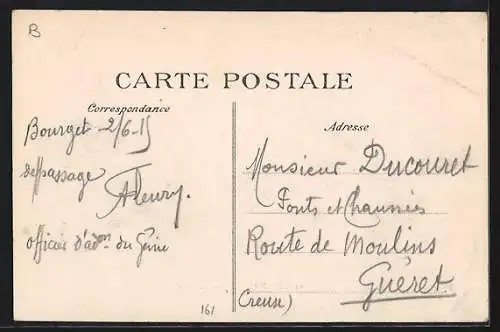 B
CARTE POSTALE
Correspondance
Adresse
Bourget 2/6-15
de passage
AFleury.
Officier d'adon. du Génie
Monsieur Ducouret
Ponts et Chaussées
Route de Moulins
Guéret
(Creuse)
161